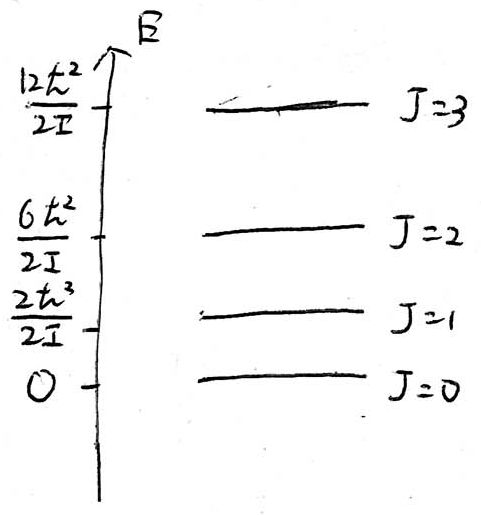 E
12ℏ²/2I
J=3
6ℏ²/2I
J=2
2ℏ³/2I
J=1
0
J=0